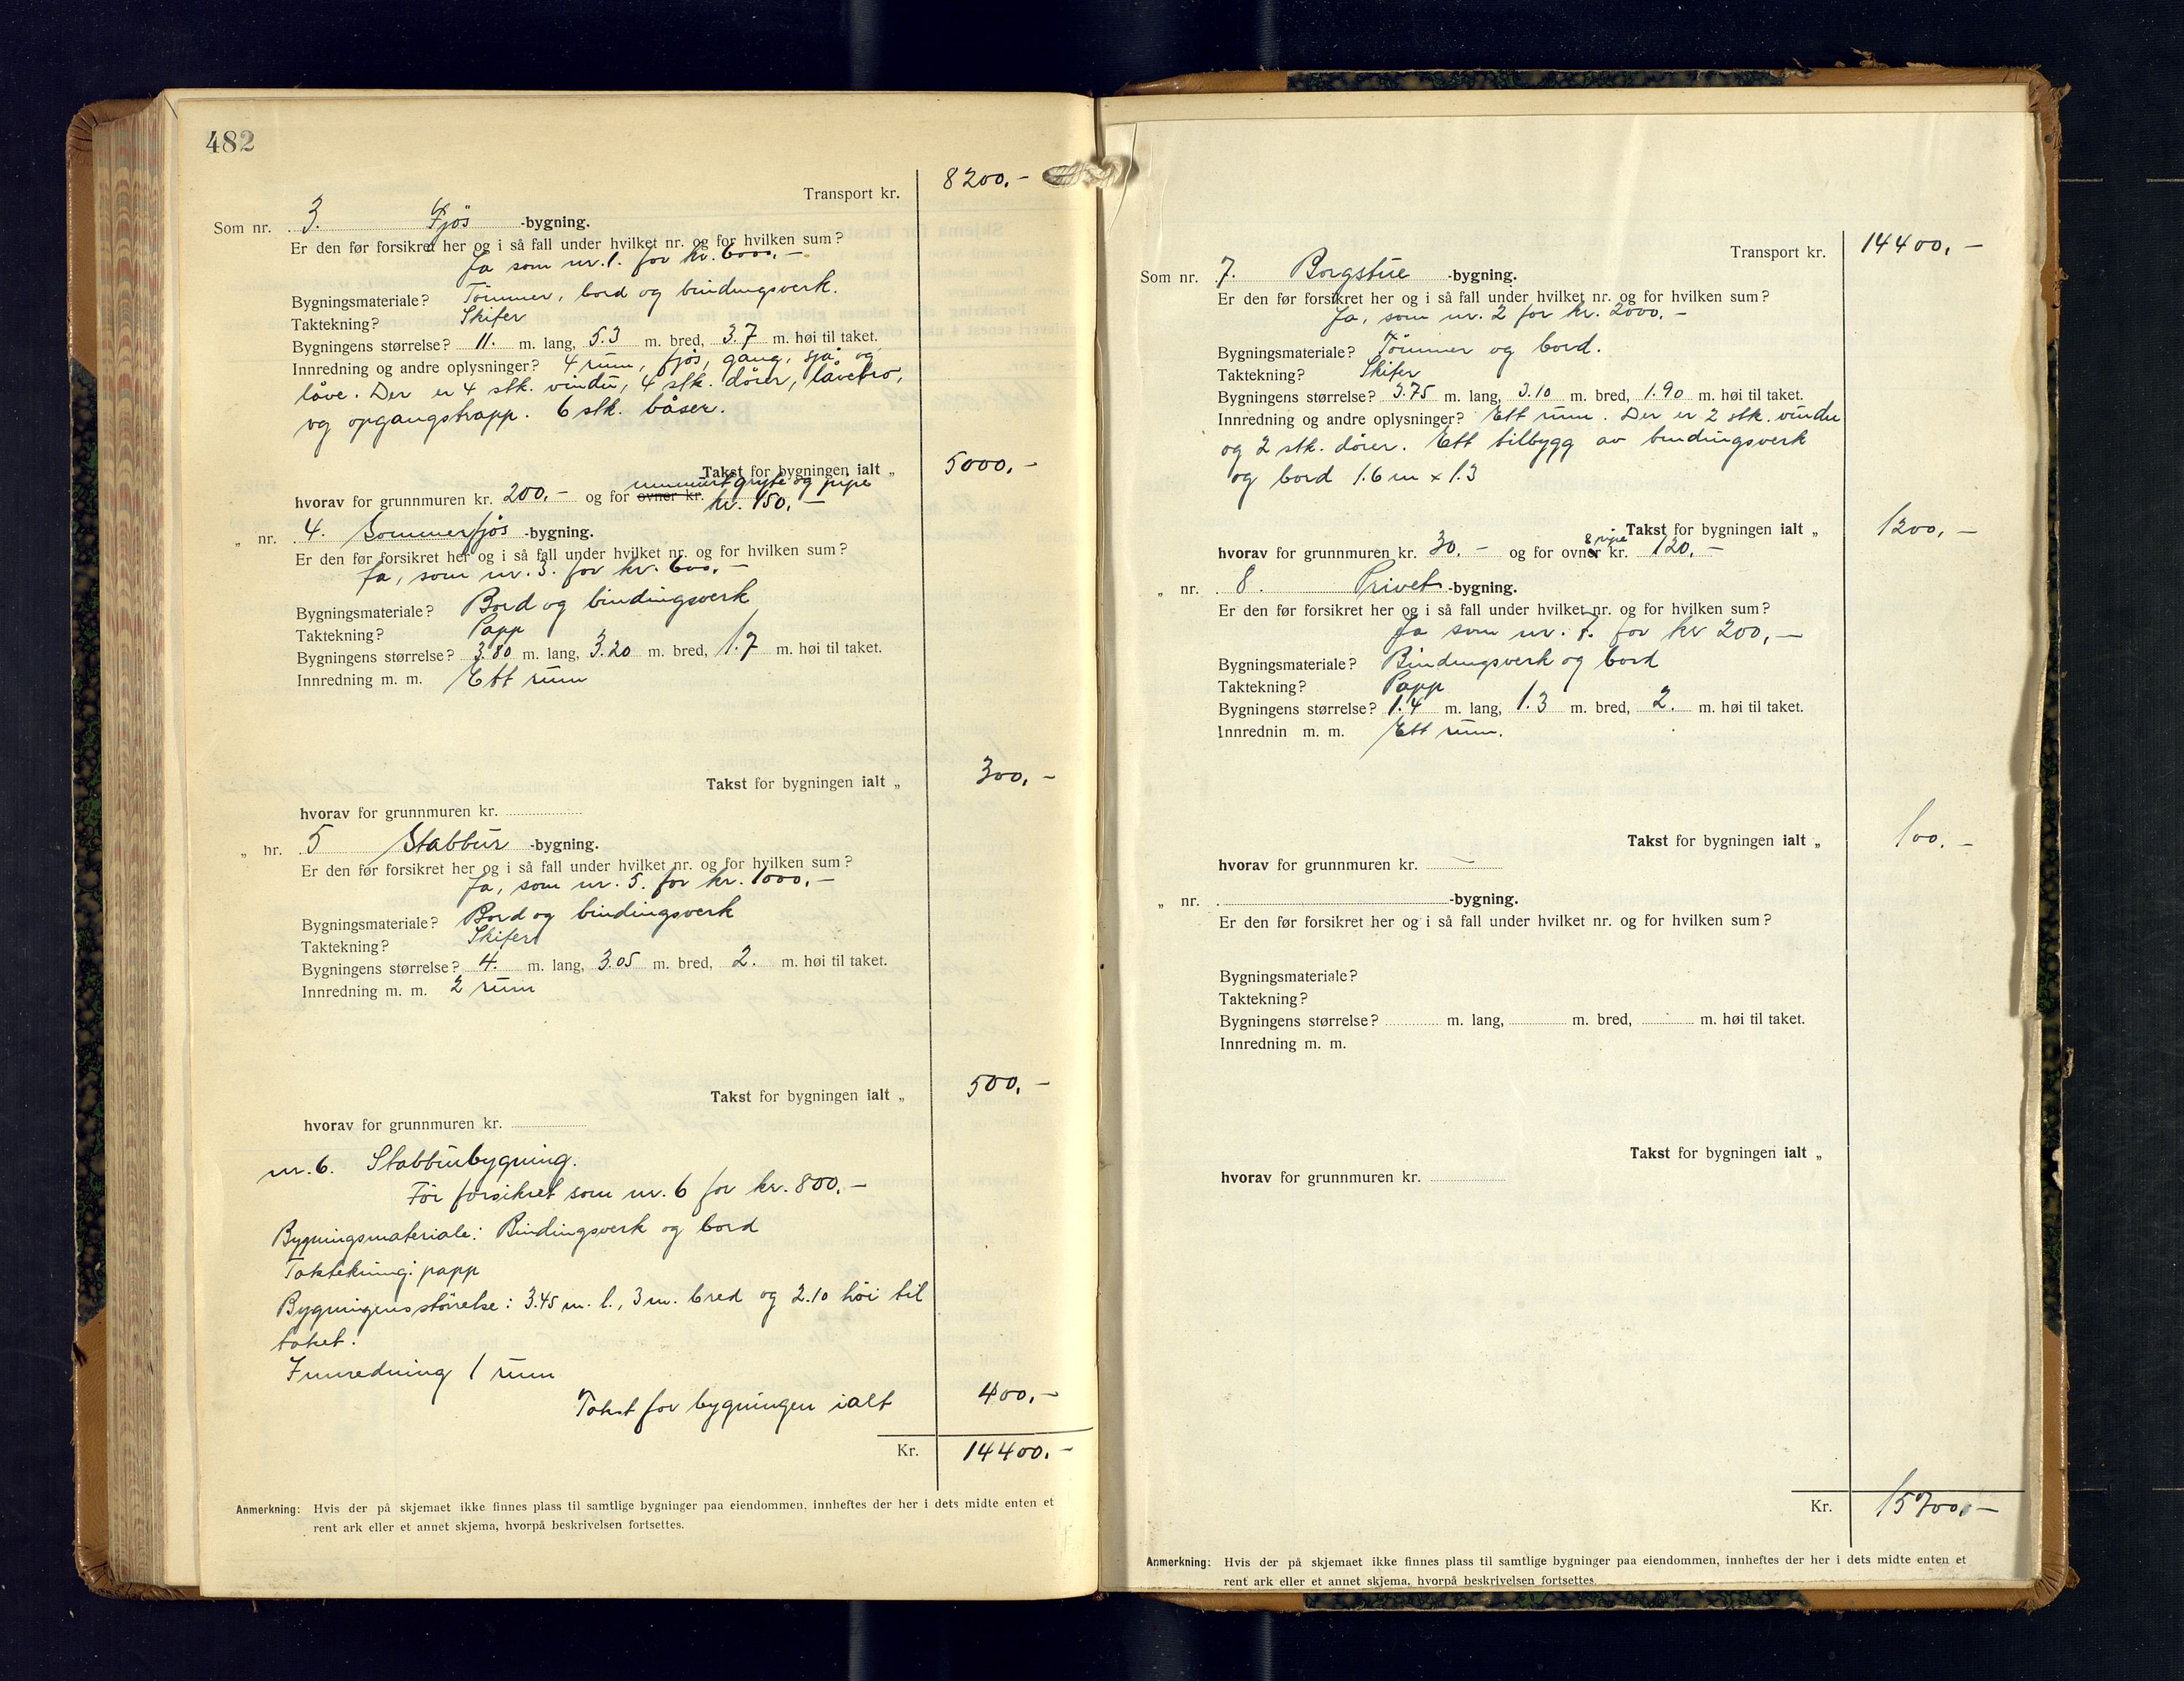 482
Transport kr. 8200.-
Som nr. 3. Fjös -bygning.
Er den før forsikret her og i så fall under hvilket nr. og for hvilken sum?
Ja som nr. 1. for kr. 6000.-
Bygningsmateriale? Tömmer, bord og bindingsverk.
Taktekning? Skifer
Bygningens størrelse? 11. m. lang, 5.3 m. bred, 3.7 m. høi til taket.
Innredning og andre oplysninger? 4 rum, fjøs, gang, sjå og
låve. Der er 4 stk. vindu, 4 stk. dører, låvebro,
og opgangstrapp. 6 stk. båser.
Takst for bygningen ialt „ 5000.-
innmurt gryte og pipe
hvorav for grunnmuren kr. 200.- og for ovner kr. kr. 150.-
„ nr. 4. Sommerfjøs -bygning.
Er den før forsikret her og i så fall under hvilket nr. og for hvilken sum?
Ja, som nr. 3. for kr. 600.-
Bygningsmateriale? Bord og bindingsverk
Taktekning? Papp
Bygningens størrelse? 3.80 m. lang, 3.20 m. bred, 1.7 m. høi til taket.
Innredning m. m. Ett rum
Takst for bygningen ialt „ 300.-
hvorav for grunnmuren kr.
„ nr. 5 Stabbur -bygning.
Er den før forsikret her og i så fall under hvilket nr. og for hvilken sum?
Ja, som nr. 5. for kr. 1000.-
Bygningsmateriale? Bord og bindingsverk
Taktekning? Skifer
Bygningens størrelse? 4. m. lang, 3.05 m. bred, 2. m. høi til taket.
Innredning m. m. 2 rum
Takst for bygningen ialt „ 500.-
hvorav for grunnmuren kr.
nr. 6. Stabburbygning.
Før forsikret som nr. 6 for kr. 800.-
Bygningsmateriale: Bindingsverk og bord
Taktekning: papp
Bygningens størrelse: 3.45 m. l., 3 m. bred og 2.10 høi til
taket.
Innredning 1 rum
Takst for bygningen ialt 400.-
Kr. 14400.-
Anmerkning: Hvis der på skjemaet ikke finnes plass til samtlige bygninger paa eiendommen, innheftes der her i dets midte enten et
rent ark eller et annet skjema, hvorpå beskrivelsen fortsettes.
Transport kr. 14400.-
Som nr. 7. Borgstue -bygning.
Er den før forsikret her og i så fall under hvilket nr. og for hvilken sum?
Ja, som nr. 2 for kr. 2000.-
Bygningsmateriale? Tömmer og bord.
Taktekning? Skifer
Bygningens størrelse? 3.75 m. lang, 3.10 m. bred, 1.90 m. høi til taket.
Innredning og andre oplysninger? Ett rum. Der er 2 stk. vindu
og 2 stk. dører. Ett tilbygg av bindingsverk
og bord 1.6 m x 1.3
Takst for bygningen ialt „ 1200.-
hvorav for grunnmuren kr. 30.- og for ovner pipe kr. 120.-
„ nr. 8. Privet -bygning.
Er den før forsikret her og i så fall under hvilket nr. og for hvilken sum?
Ja som nr. 7. for kr 200.-
Bygningsmateriale? Bindingsverk og bord
Taktekning? Papp
Bygningens størrelse? 1.4 m. lang, 1.3 m. bred, 2. m. høi til taket.
Innrednin m. m. Ett rum.
Takst for bygningen ialt „ 100.-
hvorav for grunnmuren kr. —
„ nr. -bygning.
Er den før forsikret her og i så fall under hvilket nr. og for hvilken sum?
Bygningsmateriale?
Taktekning?
Bygningens størrelse? m. lang, m. bred, m. høi til taket.
Innredning m. m.
Takst for bygningen ialt „
hvorav for grunnmuren kr.
Kr. 15700.-
Anmerkning: Hvis der på skjemaet ikke finnes plass til samtlige bygninger paa eiendommen, innheftes der her i dets midte enten et
rent ark eller et annet skjema, hvorpå beskrivelsen fortsettes.